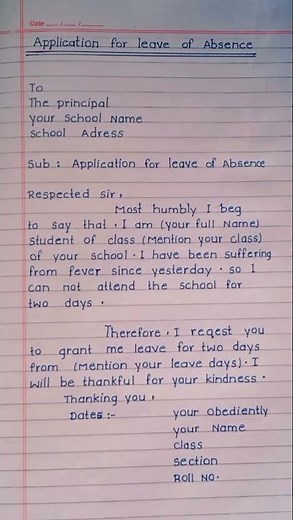 Date ___/___/___
Application for leave of Absence
To
The principal
your School Name
School Adress
Sub : Application for leave of Absence
Respected sir,
Most humbly I beg
to say that, I am (your full Name)
student of class (Mention your class)
of your school. I have been suffering
from fever since yesterday. so I
can not attend the school for
two days.
Therefore, I reqest you
to grant me leave for two days
from (Mention your leave days). I
will be thankful for your kindness.
Thanking you,
Dates :- your obediently
your Name
class
section
Roll No.